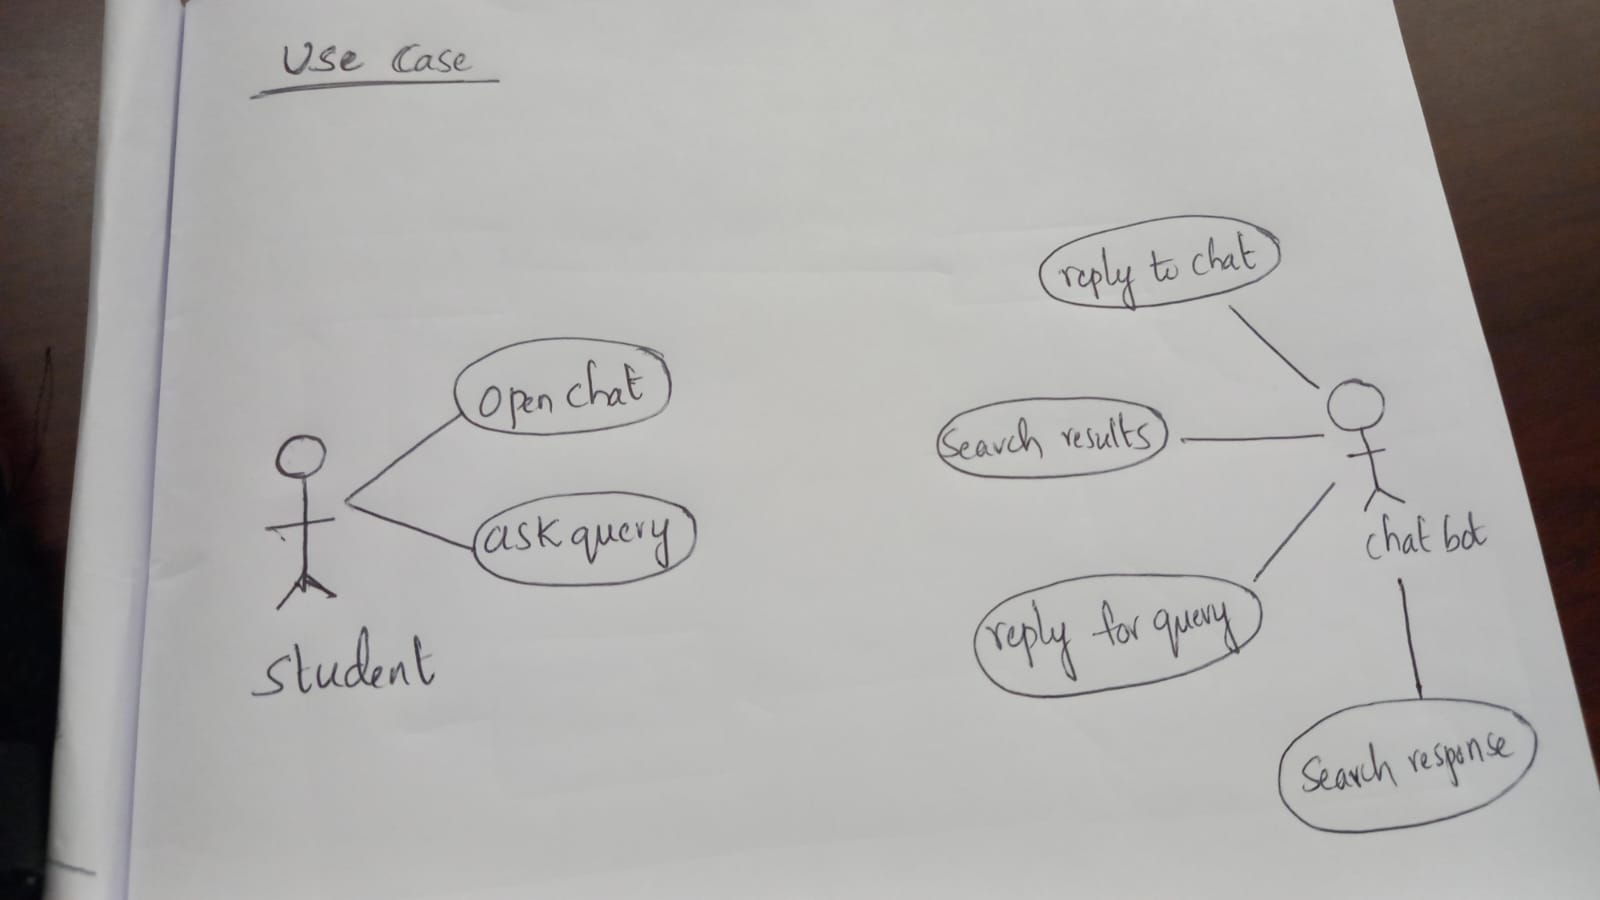 Use Case
open chat
ask query
student
reply to chat
Search results
reply for query
chat bot
Search response